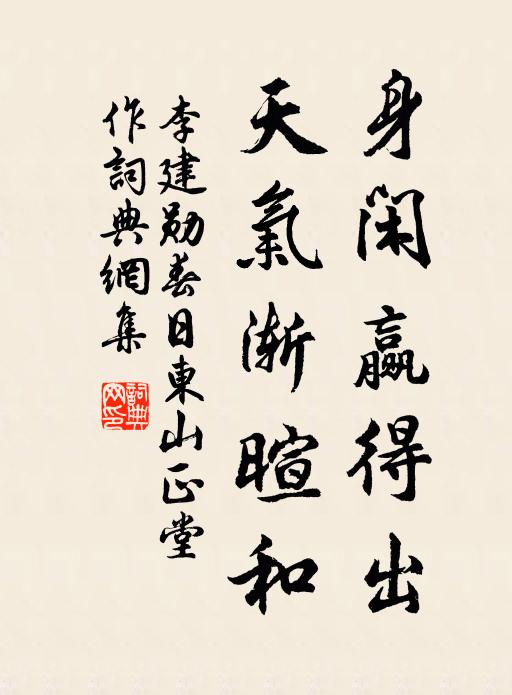 身閑贏得出
天氣漸暄和
李建勛春日東山正堂
作詞典網集
詞典
網印